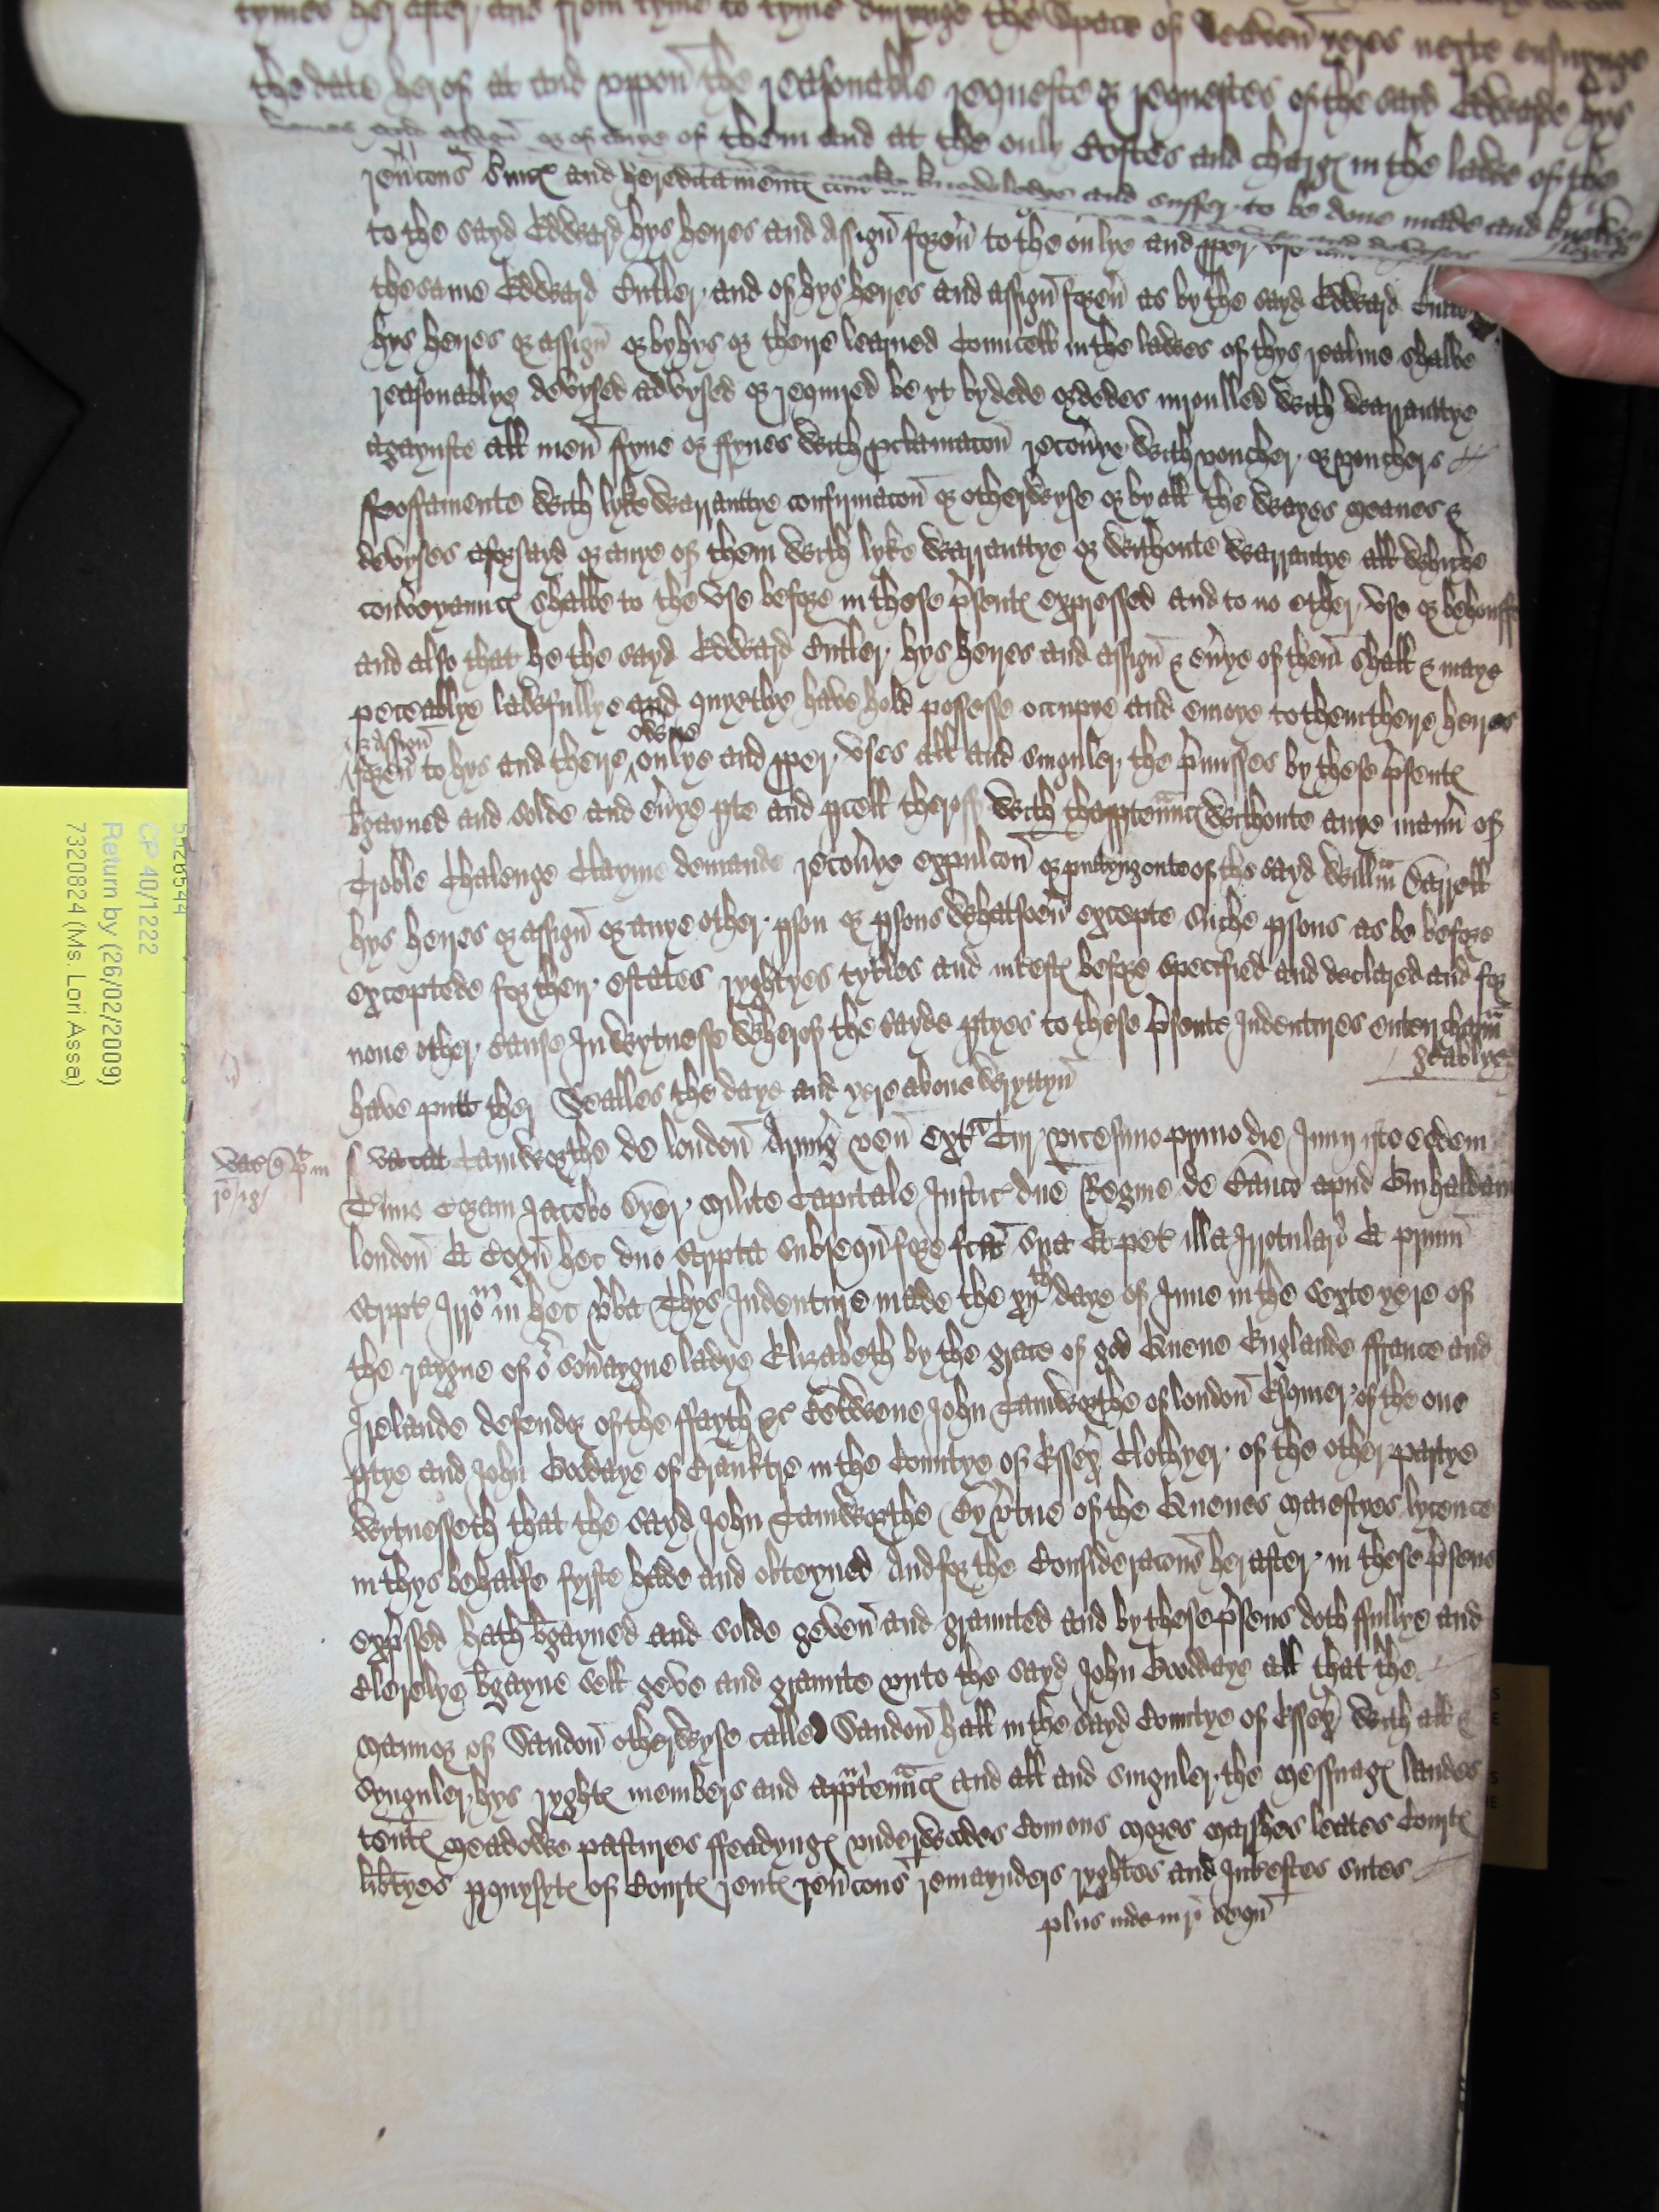 tymes her after and from tyme to tyme duringe the space of seaven yeres nexte ensuynge
the date herof at and uppon the reasonable requeste or requestes of the sayd Edwarde hys
heires and assign or of anye of them and at the only Costes and charg in the lawe of the
make knowledge and suffer to be done made and knowle
revcons suic and hereditament
to the sayd Edward hys heires and Assign forevr to the onlye and pper use
the same Edward Cutler and of hys heires and assign forevr as by the sayd Edward Cutler
hys heires or assign or by hys or there learned Councell in the lawes of thys realme shalbe
reasonablye devysed advysed or requyred be yt by dede or dedes inroulled with warrauttye
agaynste all men fyne or fynes with pclamacon recovrye with voucher or vouchers
feoffamente with lyke warrauttye confirmacon or otherwyse or by all the wayes meanes &
devyses aforsayd or anye of them with lyke warrauttye or withoute warrantye all whiche
conveyaunc shalbe to the use before in these psent expressed and to no other use or behouffe
and also that he the sayd Edward Cutler hys heires and assign & evrye of them shall & maye
peceablye lawfullye and quyetlye have hold possesse occupye and enioye to them there heires
& assign
owne
forevr to hys and there onlye and pper uses all and singuler the pmisses by these psent
bgayned and solde and evrye pte and pcell therof with thapptennc withoute anye mannr of
Troble Chalenge Clayme demande recovrye expulcon or puttyng oute of the sayd Willm Darrell
hys heires or assign or anye other pson or psons whatsoevr excepte suche psons as be before
exceptede for their estates ryghtyes tytles and intest before specified and declared and for
none other cause In wytnesse wherof the sayde ptyes to these psente Indentures enterchaun
geablye
have putt ther Sealles the daye and yere above wryttyn
vac
vacat Tamworthe de london Armig ven ext Cur vicesimo primo die Junij isto eodem
Tmino Coram Jacobo Dyer Milite Capitale Justic dne Regine de Banco apud Guihaldam
london Et Cogn hec duo scripta subsequn fore fcta sua Et pet illa Irrotulari Et primu
script Irro in hec vba Thys Indenture made the xijth daye of June in the sexte yere of
the raygne of or sovraygne ladye Elizabeth by the grace of god Quene Englande ffrance and
Irelande defendor of the ffayth &c Betwene John Tamworthe of london Esquier of the one
ptye and John Goodaye of Branktre in the Countye of Essex Clothyer of the other partye
wytnesseth that the sayd John Tamworthe By vtue of the Quenes Maiestyes lycence
in thys behalfe fyrste hade and obteyned And for the Consideracons her after in these psens
expssed hath bgayned and solde geven and graunted and by these psens doth ffullye and
Clerelye bgayne sell geve and graunte unto the sayd John Goodaye all that the
Mannor of Sandon otherwyse called Sandon hall in the sayd Countye of Essex with all &
Synguler hys ryght members and apptennc and all and singuler the Messuag landes
tent Meadowe pastures ffeadyng underwodes Comons Mores Marshes leates Court
libtyes pquysyt of Court rent revcons remaynders ryghtes and Intestes sutes
plus inde in ro sequ
5526544
CP 40/1222
Return by (26/02/2009)
7320824 (Ms. Lori Asse)